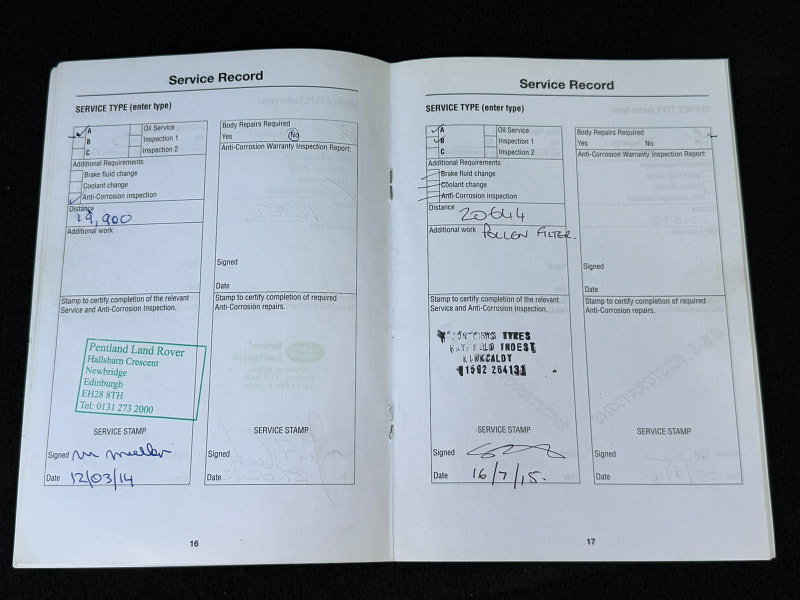 Service Record
SERVICE TYPE (enter type)
A
B
C
Oil Service
Inspection 1
Inspection 2
Additional Requirements
Brake fluid change
Coolant change
Anti-Corrosion inspection
Distance
19,900
Additional work
Stamp to certify completion of the relevant
Service and Anti-Corrosion Inspection.
Pentland Land Rover
Hallsbarn Crescent
Newbridge
Edinburgh
EH28 8TH
Tel: 0131 273 2000
SERVICE STAMP
Signed
Date 12/03/14
Body Repairs Required
Yes No
Anti-Corrosion Warranty Inspection Report:
Signed
Date
Stamp to certify completion of required
Anti-Corrosion repairs.
SERVICE STAMP
Signed
Date
16
Service Record
SERVICE TYPE (enter type)
A
B
C
Oil Service
Inspection 1
Inspection 2
Additional Requirements
Brake fluid change
Coolant change
Anti-Corrosion inspection
Distance
20644
Additional work POLLEN FILTER.
Stamp to certify completion of the relevant
Service and Anti-Corrosion Inspection.
TYRES
INDEST
KIRKCALDY
SERVICE STAMP
Signed
Date 16/7/15.
Body Repairs Required
Yes No
Anti-Corrosion Warranty Inspection Report:
Signed
Date
Stamp to certify completion of required
Anti-Corrosion repairs.
SERVICE STAMP
Signed
Date
17